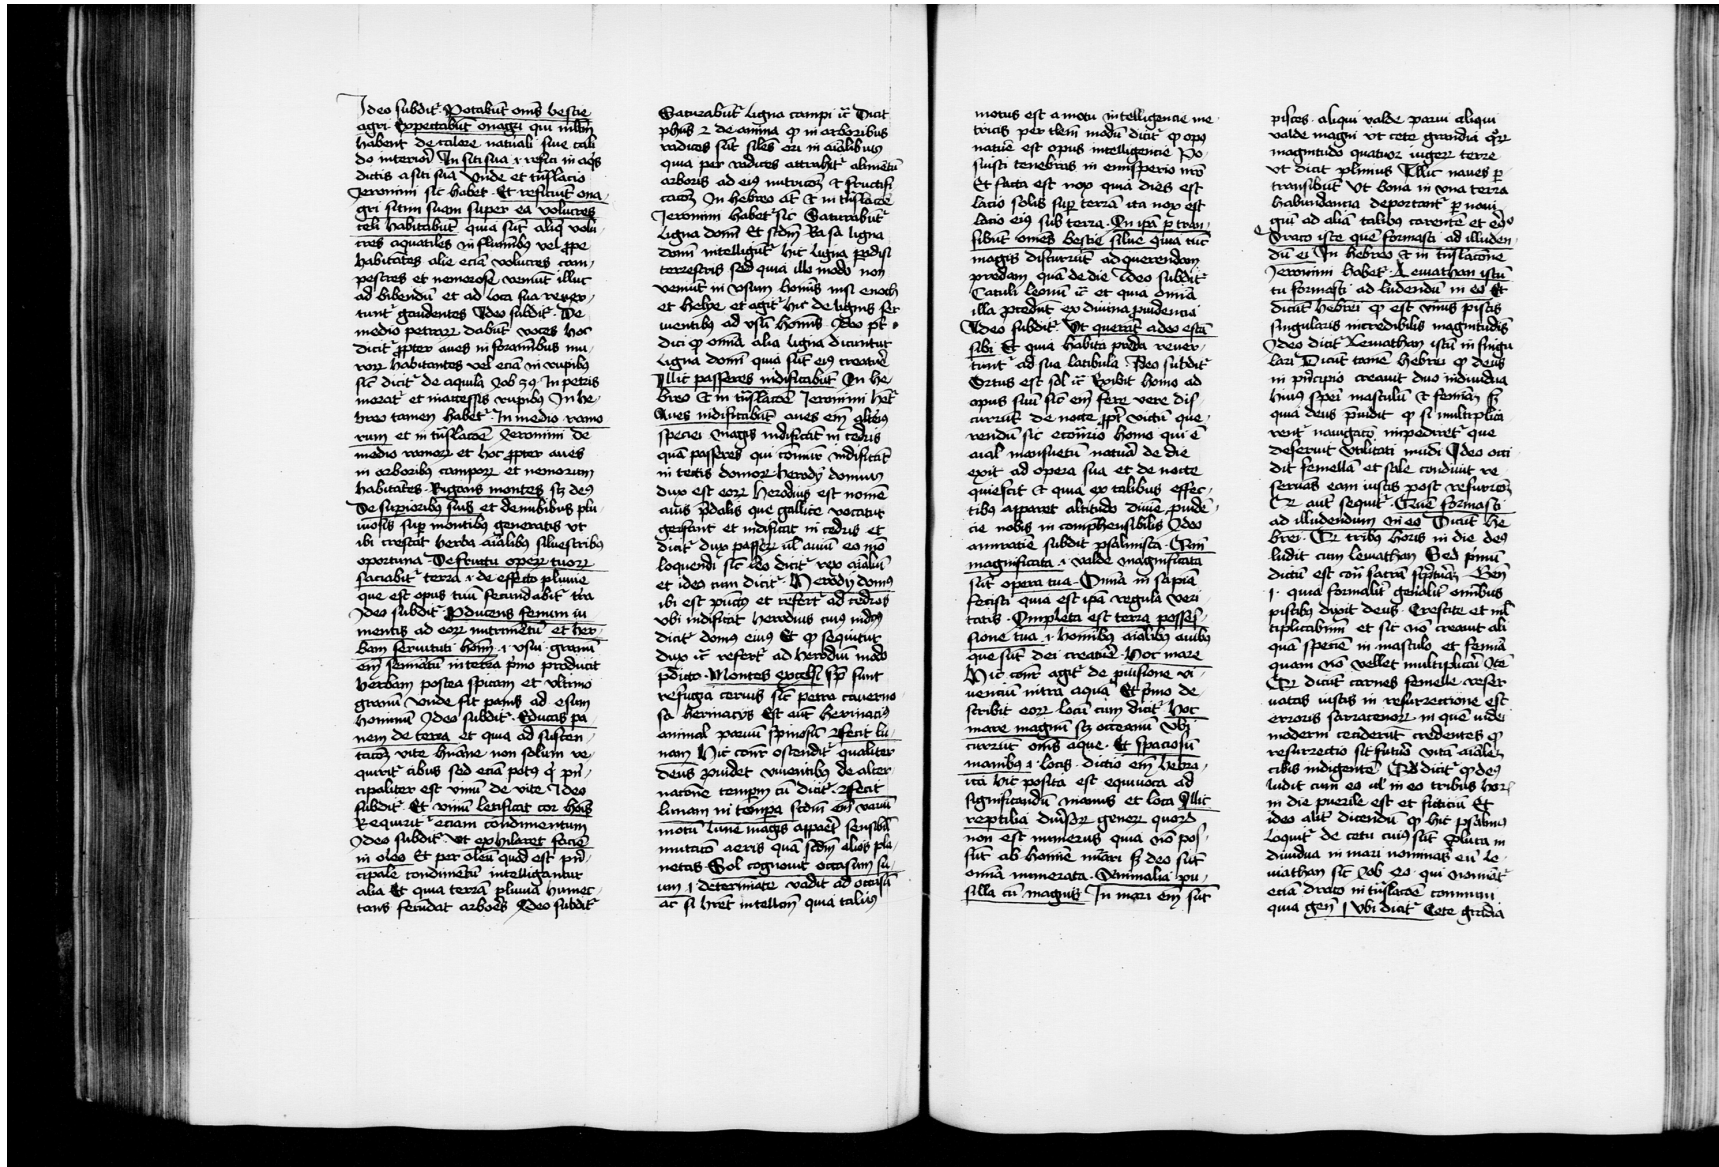 Ideo subdit᷑ · Potabūt om̄s bestie
agri · Expectabūt onagri qui
habent de calore naturali siue cali
do interiori In siti sua ·i· refici in aq̄s
dictis a siti sua Vnde et tūslacio
Jeronimi sic habet · Et reficiūt ona¬
gri sitim suam super ea volucres
celi habitabūt quia sūt aliq̄ volu¬
cres aquatiles in fluminibꝰ vel ꝓpe
habitātes alie eciā volucres cam¬
pestres et nemorose veniūt illuc
ad bibendū et ad loca sua reuer¬
tunt᷑ gaudentes Ideo subdit᷑ · De
medio petrarꝝ dabūt voces hoc
dicit᷑ ꝓpter aues in foraminibus mu¬
rorꝝ habitantes vel eciā in rupibꝰ
sic̄ dicit᷑ de aquila Iob 39 In petris
morat᷑ et inaccessis rupibꝰ In he¬
breo tamen habet᷑ · In medio ramo
rum et in tūslacōe Jeronimi de
medio ramorꝝ et hoc ꝓpter aues
in arboribꝰ camporꝝ et nemorum
habitātes · Rigans montes sꝫ deꝰ
De supioribꝰ suis et de nubibus plu¬
uiosis suꝑ montibꝰ generatis vt
ibi crescat herba aīalibꝰ siluestribꝰ
oportuna · De fructu operꝝ tuorꝝ
saciabit᷑ terra ·i· de effectu pluuie
que est opus tuū fecundabit᷑ tr̄a
Ideo subdit᷑ Ꝓducens fenum iu
mentis ad eorꝝ nutrimētū et her¬
bam seruituti hoīm ·i· vsui · granū
em̄ seminātū in terra p̄mo producit
herbam postea spicam et vltimo
granū vnde fit panis ad esum
hominum Ideo subdit᷑ · Educas pa
nem de terra et quia ad susten¬
tacōꝫ vite hūane non solum re¬
quirit᷑ cibus sed eciā potꝰ qͥ pn̄¬
cipaliter est vinū de vite Ideo
subdit᷑ · Et vinū letificat cor hoīs
Requirit᷑ eciam condimentum
Ideo subdit᷑ · Vt exhilaret faciē
in oleo Et per oleū quod est pn̄¬
cipale condimētū intelligantur
alia Et quia terrā pluuia humec¬
tans fecūdat arbores Ideo subdit᷑
Saturabūt᷑ ligna campi ic̄ Dicit
ph̄us 2 de anima ꝙ in arboribus
radices sūt siles ori in aīalibus
quia per radices attrahit᷑ alimētū
arboris ad eiꝰ nutricōꝫ et fructifi
cacōꝫ In hebreo at̄ et in tūslacōe
Jeronimi habet᷑ sic Saturabūt᷑
ligna domī Et scdm̄ Ra sa ligna
domī intelligūt᷑ hic ligna ꝑadisi
terrestris sed quia illo modo non
veniūt in vsum homīs nisi enoch
et helye et agit᷑ hic de lignis ser
uientibꝰ ad vsū homīs Ideo pt̄
dici ꝙ omīa alia ligna dicuntur
ligna domī quia sūt eiꝰ creature
Illic passeres nidificabūt In he¬
breo et in tūslacōe Jeronimi het᷑
Aues nidificabūt aues em̄
speciei magis nidificāt in cedris
quā passeres qui cōiter nidificāt
in tectis domorꝝ herodij domus
dux est eorꝝ herodius est nomē
auis p̄dalis que gallice vocatur
gerfaut et nidificat in cedris et
dicit᷑ dux passerꝝ ul̄ auiū eo mō
loquendi sic̄ leo dicit᷑ rex aīaliū
et ideo cum dicit᷑ · Herodij domus
ibi est pūctꝰ et refert᷑ ad cedros
vbi nidificat herodius cuiꝰ nidꝰ
dicit᷑ domus eius Et ꝙ sequitur
dux ic̄ refert᷑ ad herodiū modo
p̄dicto · Montes excelsi sꝑ sunt
refugia ceruis sic̄ petra caverno
sa herinacijs Est aūt herinaciꝰ
animal paruū spinosū Fecit lu¬
nam Hic cōnr ostendit᷑ qualiter
deus ꝓuidet viuentibꝰ de alter
nacione tempor̄ cū dicit᷑ · Fecit
lunam in tempa scdm̄ em̄ variū
motū lune magis apparet sensibil
mutatō aeris quā scdm̄ alios pla¬
netas · Sol cognouit occasum su¬
um ·i· determinate vadit ad occasū
ac si hret intellcm̄ quia taliꝰ
motus est a motu intelligencie mo
tricis per tlem modū dicit᷑ ꝙ opꝰ
nature est opus intelligencie Po¬
suisti tenebras in emisperio nr̄o
Et facta est nox quia dies est
lacio solis suꝑ terrā ita nox est
lacio eiꝰ sub terra · In ipā ꝑtran¬
sibūt omēs bestie silue quia tūc
magis discurrūt ad querendam
predam quā de die Ideo subdit᷑
Catuli leonū ic̄ et quia omīa
illa ꝓcedūt ex diuina ꝓuidencia
Ideo subdit᷑ · Vt querāt a deo escā
sibi Et quia habita preda reuer¬
tunt᷑ ad sua latibula Ideo subdit᷑
Ortus est sol ic̄ Exibit homo ad
opus suū sic̄ em̄ fere vere dis¬
currūt de nocte ꝓpt᷑ victū que¬
rendū sic econūrio homo qui ē
aīal mansuetū naturā de die
exit ad opera sua et de nocte
quiescit et quia ex talibus effec¬
tibꝰ apparet altitudo diuīe ꝓuidē¬
cie nobis incomphensibilis Ideo
amiratiue subdit psalmista · Quā
magnificata ·i· valde magnificata
sūt opera tua · Omīa in sapīa
fecisti quia est ipā regula veri
tatis · Impleta est terra posses¬
sione tua ·i· hoībus aīalibꝰ auibꝰ
que sūt dei creature · Hoc mare
Hic cōnr agit᷑ de ꝓuisione vi¬
uenciū intra aquā Et p̄mo de
scribit eorꝝ locū cum dicit᷑ Hoc
mare magnū sꝫ occeanū vbi
currūt om̄s aque · Et spaciosū
manibꝰ ·i· locis · dictio em̄ hebra¬
ica hic posita est equiuoca ad
significandū manus et loca Illic
reptilia diu̇sorꝝ generꝝ quorꝝ
non est numerus quia nō pos¬
sūt ab homīe nūari sꝫ deo sūt
omīa numerata · Animalia pu¬
silla cū magnis · In mari em̄ sūt
pisces · aliqui valde parui aliqui
valde magni vt cete grandia qͦrꝝ
magnitudo quatuor iugerꝝ terre
vt dicit plinius Illic naues ꝑ
transibūt Vt bona in vna terra
habundancia deportant᷑ ꝑ naui
giū ad aliā talibꝰ carentē et
Draco iste quē formasti ad illuden¬
dū ei In hebreo et in tūslacione
Jeronimi habet᷑ · Leuiathan istū
tu formasti ad ludendū in eo Et
dicūt hebrei ꝙ est vnus piscis
singularis incredibilis magnitudīs
Ideo dicit᷑ Leuiathan istū in singu
lari Dicūt tamē hebrei ꝙ deus
in pn̄cipio creauit duo indiuidua
huiꝰ spēi masculū et femiā sꝫ
quia deus p̄uidit ꝙ si multiplica
rent᷑ nauigacō impediret᷑ que
deseruit vtilitati mūdi Ideo occi
dit femellā et sale condiuit re
seruās eam iustis post resurreccōꝫ
Et aūt sequit᷑ · Quē formasti
ad illudendum in eo Dicūt he
brei · Et tribus horis in die deꝰ
ludit cum leuiathan Sed p̄mū
dictū est con̄ sacrā scripturā Gen̄
1 · quia formalit᷑ gen̄alit᷑ omībus
piscibꝰ dixit deus · Crescite et ml̄
tiplicabimī et sic nō creauit ali
quā speciē in masculo et femīa
quam nō vellet multiplicari Itē
Et dicūt carnes femelle reser
uatas iustis in resurrectione est
erroris sarracenorꝝ in quē iudei
moderni ceciderūt credentes ꝙ
resurrectio sit futura vitā aīalem
cibis indigentē Et dicit᷑ ꝙ deꝰ
ludit cum eo ul̄ in eo tribus horis
in die puerile est et ficticiū Et
ideo alit᷑ dicendū ꝙ hic psalmꝰ
loquit᷑ de cetu cuiꝰ sūt plura in
diuidua in mari nominās eū le¬
uiathan sic̄ Iob 40 · qui nomiat᷑
eciā draco in tūslacōe communi
quia gen̄ 1 vbi dicit᷑ Cete grādia